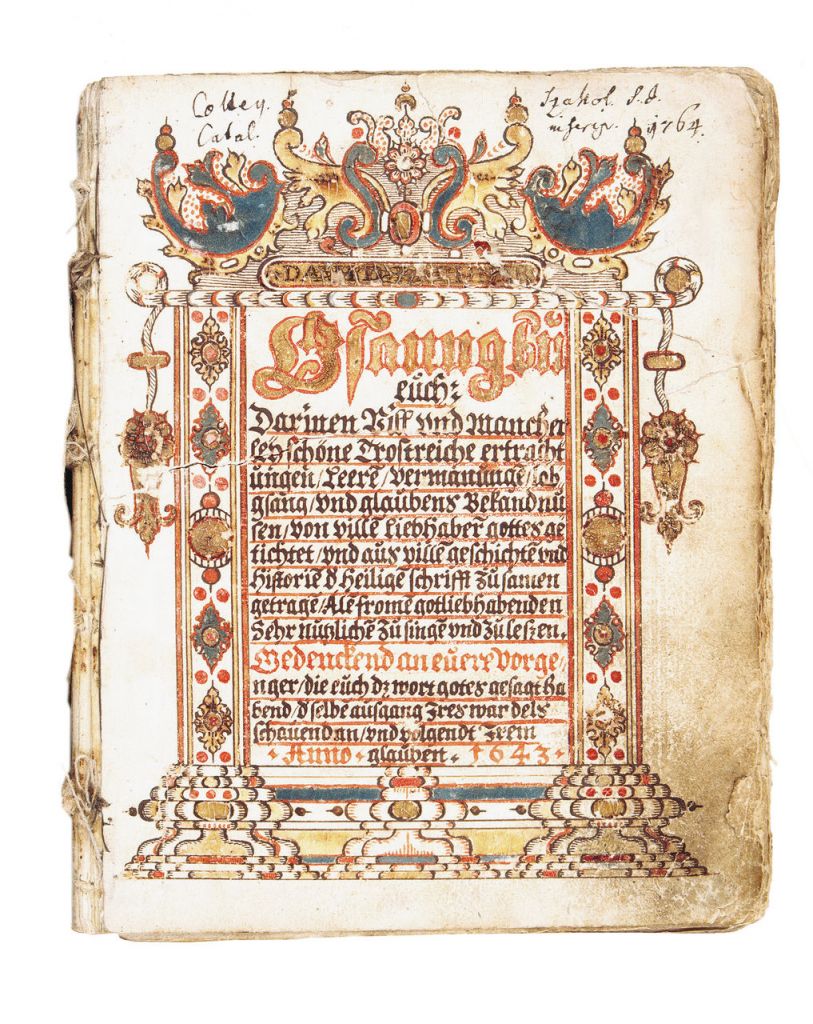 Colleg.
Catal.
Szakol. S. J.
1764.
Gsanng bü
euch:
Darinen Vill vnd Mancher
leÿ schöne Trostreiche ertracht
ungen / Leerē / vermanunge / lob
gsang / vnd glaubens Bekandnu
sen / von villē liebhaberr gottes ge
tichtet / vnd aus villē geschichtē vnd
historiē d̄ Heiligē schrifft zu samen
getragē / Alē fromē gotliebhabenden
Sehr nutzlichē zu singē vnd zu leszen.
Gedenckend an euere vorge-
nger / die euch dz wort gotes gesagt ha
bend / d̄ selbe ausgang Jres war dels
schauend an / vnd volgendt Jrem
Anno glauben. 1643